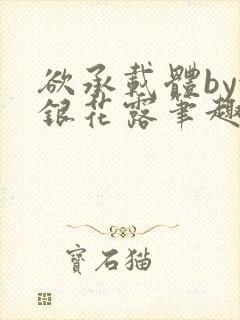 欲承載體by
銀花露筆趣
寶石猫